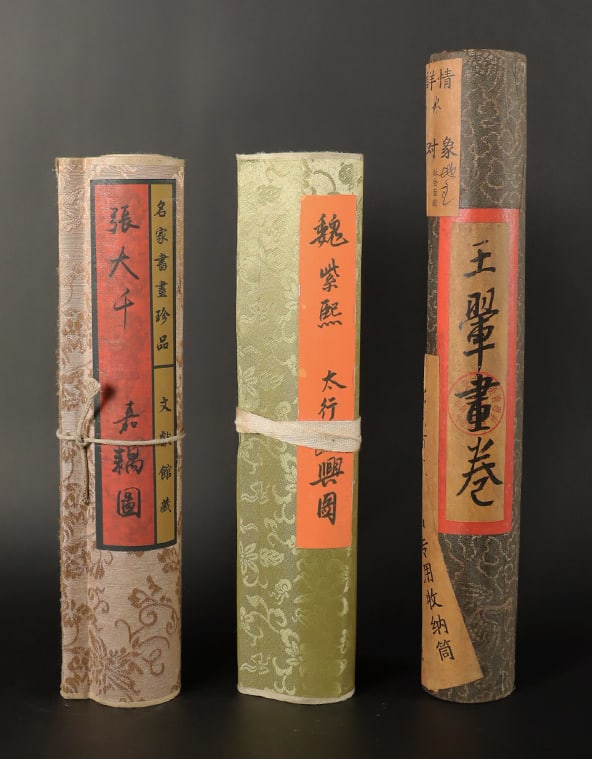 張大千 嘉耦圖
名家書畫珍品
文獻館藏
魏紫熙 太行
興圖
詳情
对象
王翬畫卷
专用收纳筒